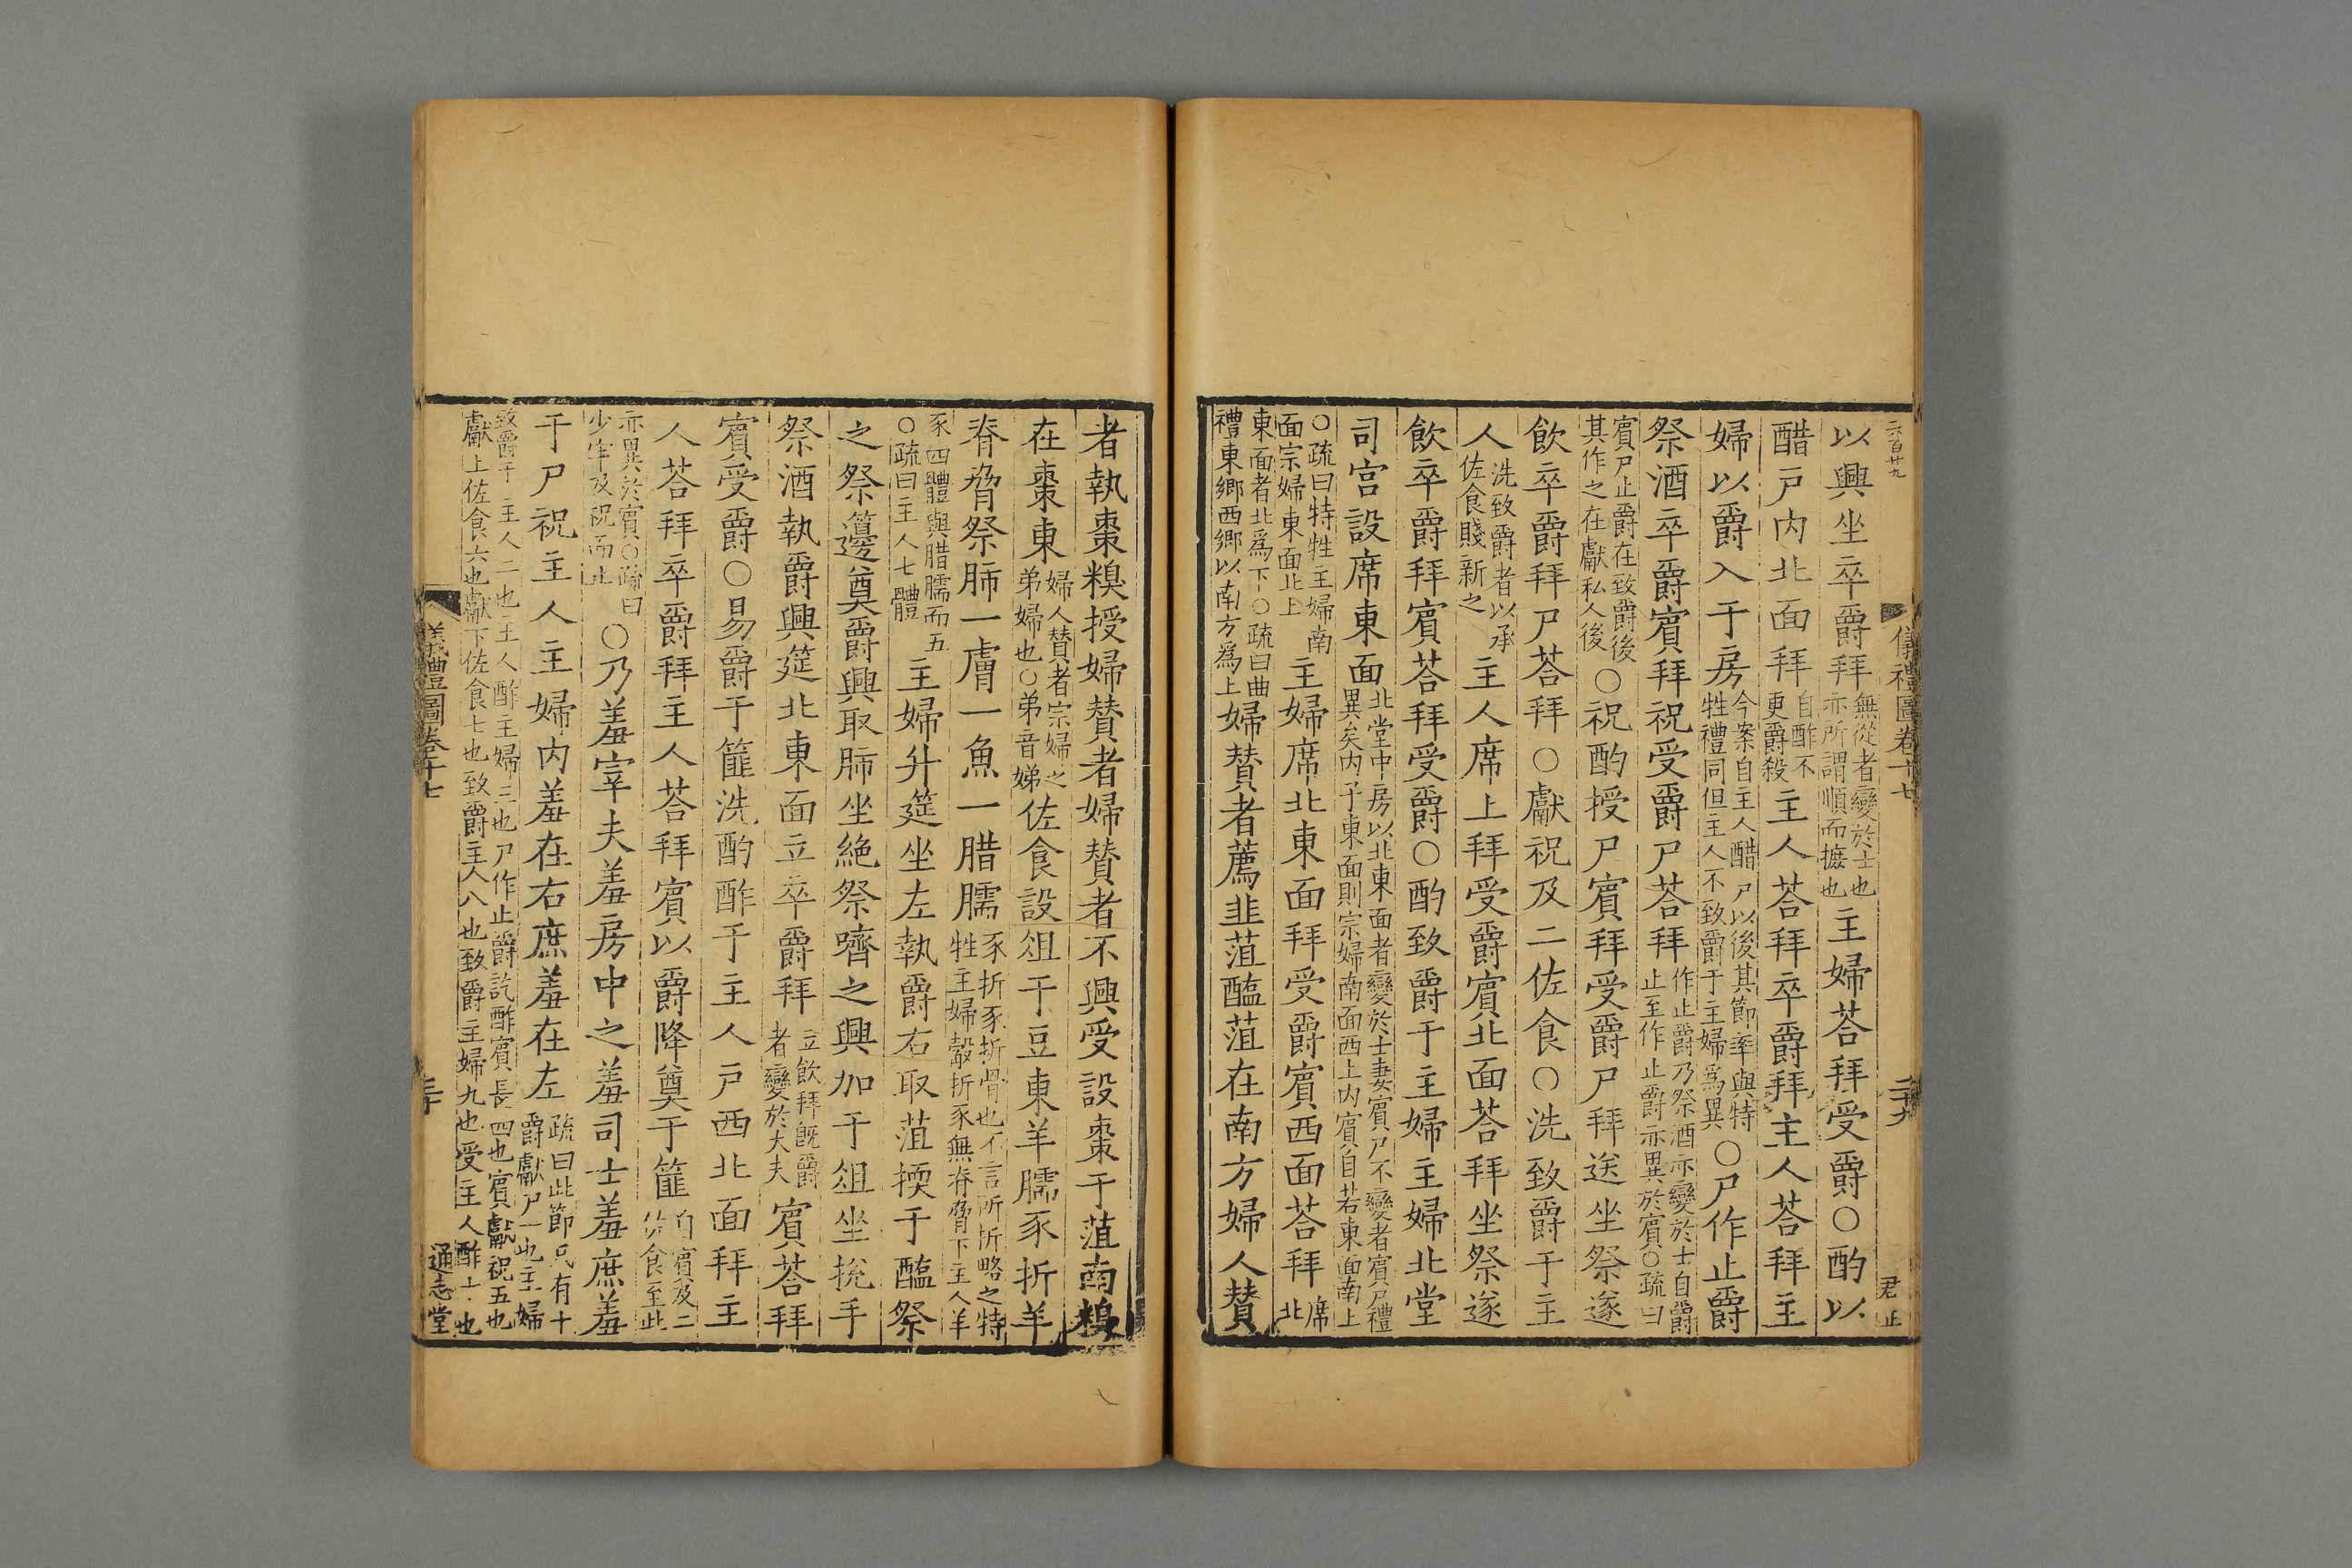 六百廿九
儀禮圖卷十七
二十九
君正
以興坐卒爵拜無從者變於士也亦所謂順而摭也主婦荅拜受爵○酌以
醋戸内北面拜自酢不更爵殺主人荅拜卒爵拜主人荅拜主
婦以爵入于房今案自主人醋尸以後其節率與特牲禮同但主人不致爵于主婦爲異○尸作止爵
祭酒卒爵賓拜祝受爵尸荅拜作止爵乃祭酒亦變於士自爵止至作止爵亦異於賓○疏曰
賓尸止爵在致爵後其作之在獻私人後○祝酌授尸賓拜受爵尸拜送坐祭遂
飲卒爵拜尸荅拜○獻祝及二佐食○洗致爵于主
人洗致爵者以承佐食賤新之主人席上拜受爵賓北面荅拜坐祭遂
飲卒爵拜賓荅拜受爵○酌致爵于主婦主婦北堂
司宮設席東面北堂中房以北東面者變於士妻賓尸不變者賓尸禮異矣内子東面則宗婦南面西上内賓自若東面南上
○疏曰特牲主婦南面宗婦東面北上主婦席北東面拜受爵賓西面荅拜席北
東面者北爲下○疏曰曲禮東鄉西鄉以南方爲上婦賛者薦韭菹醢菹在南方婦人賛
者執棗糗授婦賛者婦賛者不興受設棗于菹南糗
在棗東婦人賛者宗婦之弟婦也○弟音娣佐食設俎于豆東羊臑豕折羊
脊脅祭肺一膚一魚一腊臑豕折豕折骨也不言所折略之特牲主婦觳折豕無脊脅下主人羊
豕四體與腊臑而五○疏曰主人七體主婦升筵坐左執爵右取菹擩于醢祭
之祭籩奠爵興取肺坐絶祭嚌之興加于俎坐挩手
祭酒執爵興筵北東面立卒爵拜立飲拜旣爵者變於大夫賓荅拜
賓受爵○易爵于篚洗酌酢于主人戸西北面拜主
人荅拜卒爵拜主人荅拜賓以爵降奠于篚自賓及二佐食至此
亦異於賓○疏曰少牢及祝而止○乃羞宰夫羞房中之羞司士羞庶羞
于尸祝主人主婦内羞在右庶羞在左疏曰此節凡有十爵獻尸一也主婦
致爵于主人二也主人酢主婦三也尸作止爵訖酢賓長四也賓獻祝五也獻上佐食六也獻下佐食七也致爵主人八也致爵主婦九也受主人酢十也
儀禮圖卷十七
三十
通志堂